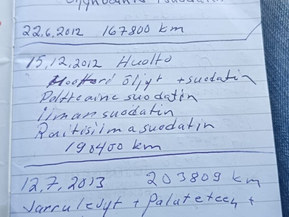 22.6.2012 167800 km
15.12.2012 Huolto
Moottori öljyt + suodatin
Polttoaine suodatin
ilman suodatin
Raitisilmasuodatin
190400 km
12.7.2013 203809 km
Jarrulevyt + Palat eteen +